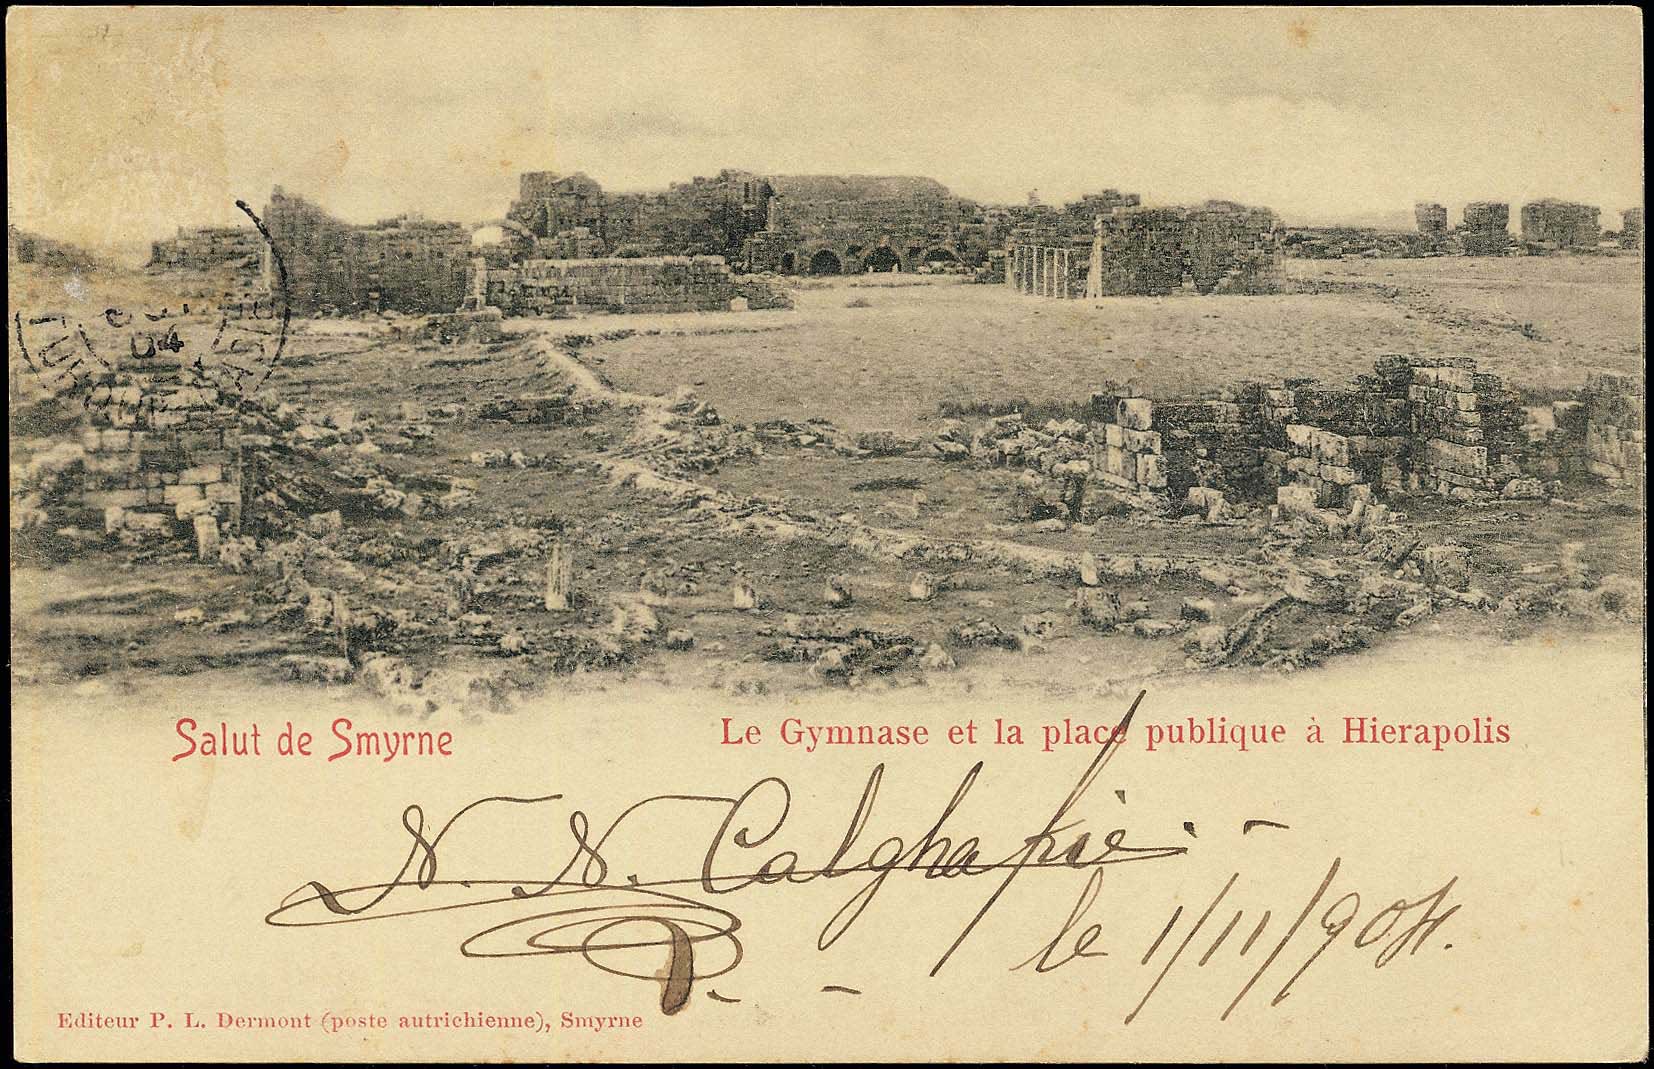 04
Salut de Smyrne
Le Gymnase et la place publique à Hierapolis
N. N. Calghapié
le 1/11/904.
Editeur P. L. Dermont (poste autrichienne), Smyrne